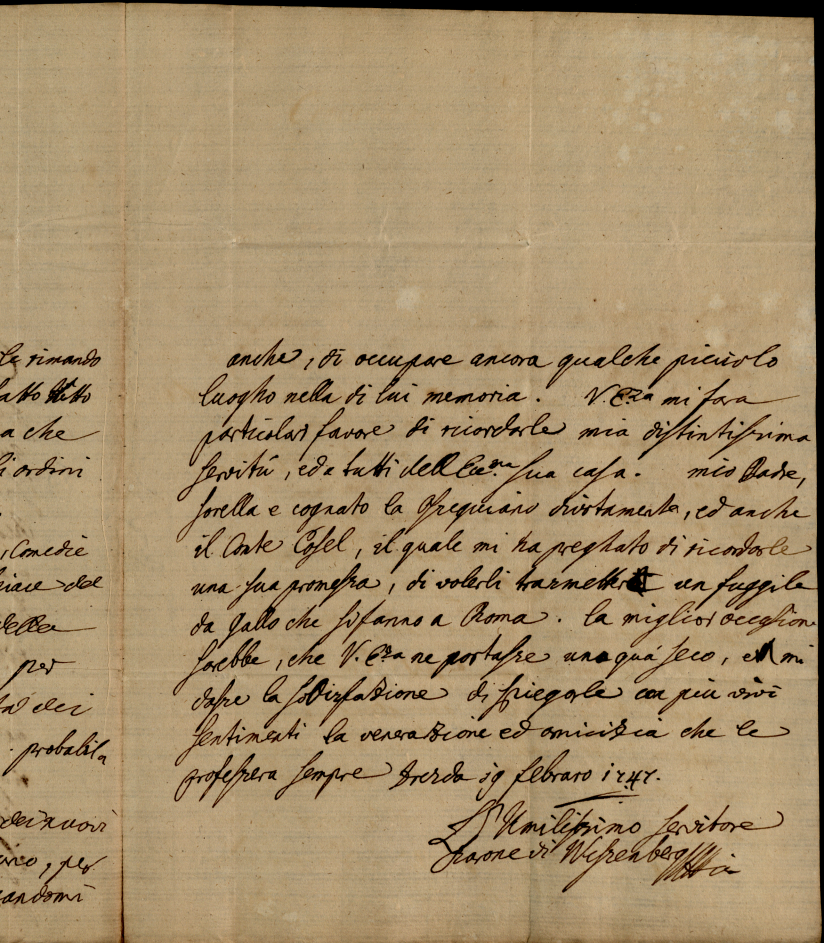 le rimando
atto tutto
a che
li ordini
, Comedie
del
della
per
dei
probabila
dei nuovi
, per
andomi
anche, di occupare ancora qualche picciolo
luogho nella di lui memoria. V. Ecza mi fara
particolar favore di ricordarle mia distintissima
servitú, ed a tutti dell Ecc.ma sua casa. mio Padre,
sorella e cognato la ossequiano distamente, ed anche
il Conte Cosel, il quale mi ha preghato di ricordarle
una sua promessa, di volerli trasmettere un fuggile
da Gallo che si fanno a Roma. la miglior occasione
sarebbe, che V. Ecza ne portasse uno quá seco, e mi
dasse la sodisfazione di spiegarle con piu vivi
sentimenti la venerazione ed amicizia che le
professera sempre Dresda 19 febraro 1747.
L'Umilissimo servitore
Barone di Wessenberg